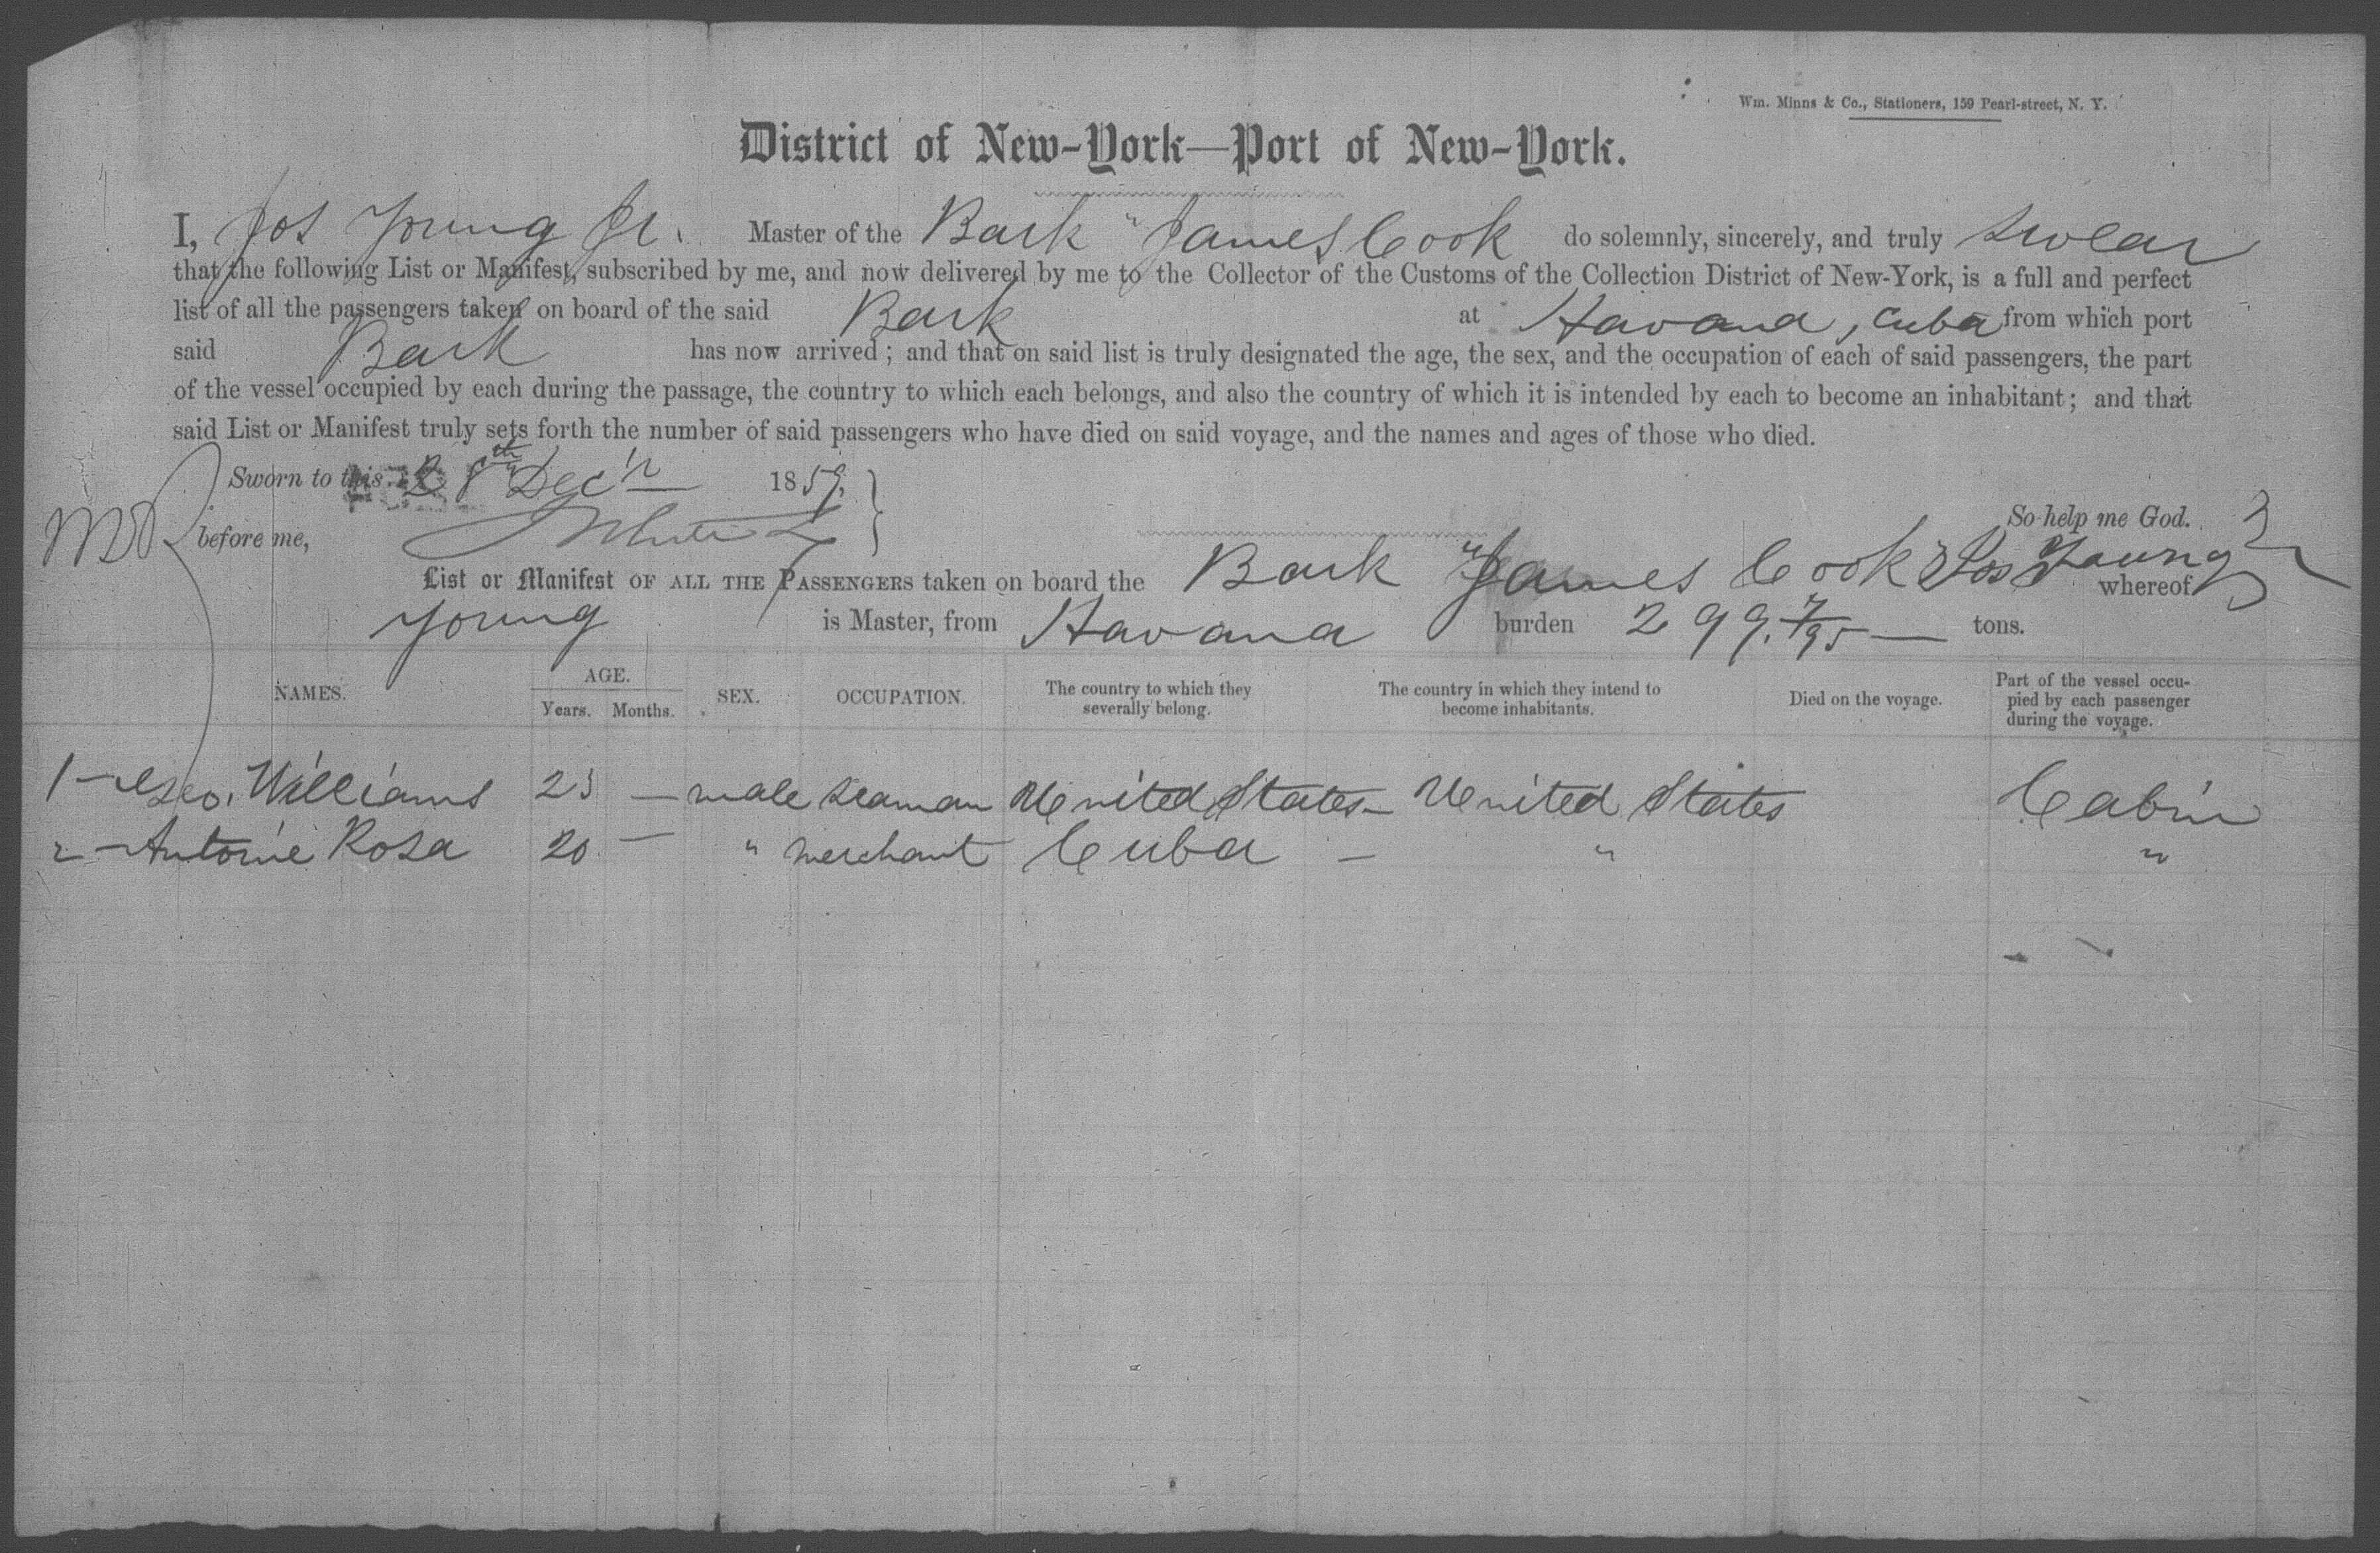 Wm. Minns & Co., Stationers, 159 Pearl-street, N. Y.
District of New-York—Port of New-York.
I, Jos Young Jr. Master of the Bark "James Cook do solemnly, sincerely, and truly swear
that the following List or Manifest, subscribed by me, and now delivered by me to the Collector of the Customs of the Collection District of New-York, is a full and perfect
list of all the passengers taken on board of the said Bark at Havana, Cuba from which port
said Bark has now arrived; and that on said list is truly designated the age, the sex, and the occupation of each of said passengers, the part
of the vessel occupied by each during the passage, the country to which each belongs, and also the country of which it is intended by each to become an inhabitant; and that
said List or Manifest truly sets forth the number of said passengers who have died on said voyage, and the names and ages of those who died.
Sworn to this 28th Decr 1859.
So help me God.
before me,
List or Manifest OF ALL THE PASSENGERS taken on board the Bark "James Cook" Jos Young whereof
Young is Master, from Havana burden 299. 7/95 — tons.
NAMES. AGE. Years. Months. SEX. OCCUPATION. The country to which they severally belong. The country in which they intend to become inhabitants. Died on the voyage. Part of the vessel occupied by each passenger during the voyage.
1 – Geo. Williams 23 — male seaman United States – United States Cabin
2 – Antonie Rosa 20 — " merchant Cuba — " "